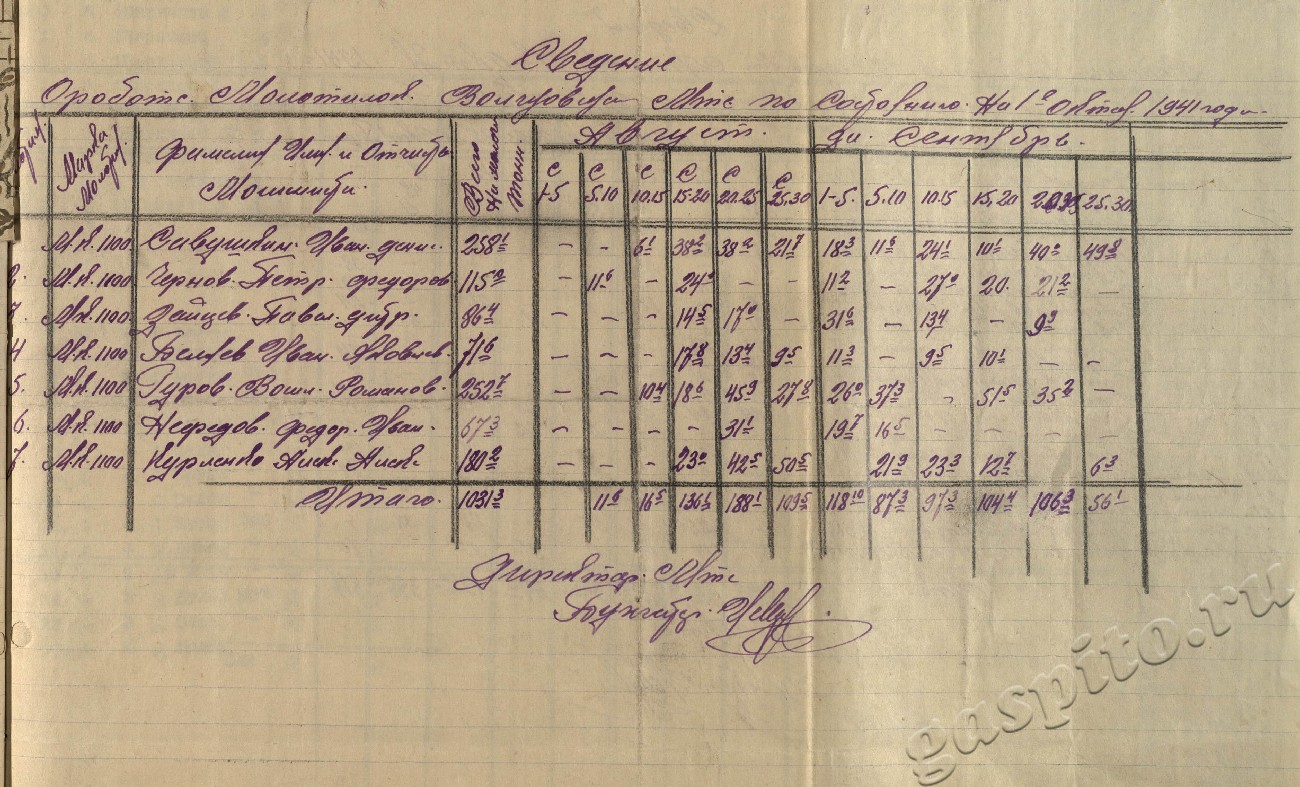 Сведение
О роботе. Молотилок. Волчковской Мтс по Состоянию. На 1е Октяб. 1941 года
Марка Молотил.
Фамелия Имя. и Отчеств.
Машиниста.
Всего На молоч. тонн.
Август. За. Сентябрь.
с 1-5 с 5.10 с 10.15 с 15-20 с 20.25 с 25.30 1-5. 5.10 10.15 15,20 25.30
М.К. 1100 Савушкин. Иван. дани. 258 1 - - 6 1 38 2 38 2 21 7 18 3 11 6 24 1 10 1 40 0 49 8
2. М.К. 1100 Чернов. Петр. федоров 115 2 - 11 6 - 24 0 - - 11 2 - 27 0 20. 21 2 -
3. М.К. 1100 Зайцев. Павел. дмтр. 86 4 - - - 14 5 17 0 - 31 6 - 13 4 - 9 9
4 М.К. 1100 Беляев Иван. Яковлев. 71 6 - - - 17 8 13 4 9 5 11 3 - 9 5 10 1 - -
5. М.К. 1100 Гуров. Васил. Романов. 252 7 - - 10 4 18 6 45 9 27 8 26 0 37 3 - 51 5 35 2 -
6. М.К. 1100 Нефедов. федор. Иван. 67 3 - - - - 31 1 19 7 16 5 - - - -
7. М.К. 1100 Курленко Алек. Алек. 180 2 - - - 23 0 42 5 50 5 21 9 23 3 12 7 6 3
Итаго. 1031 3 11 6 16 5 136 1 188 1 109 5 118 10 87 3 97 3 104 4 106 3 56 1
Директор. Мтс
Бухгалтер.
gaspito.ru